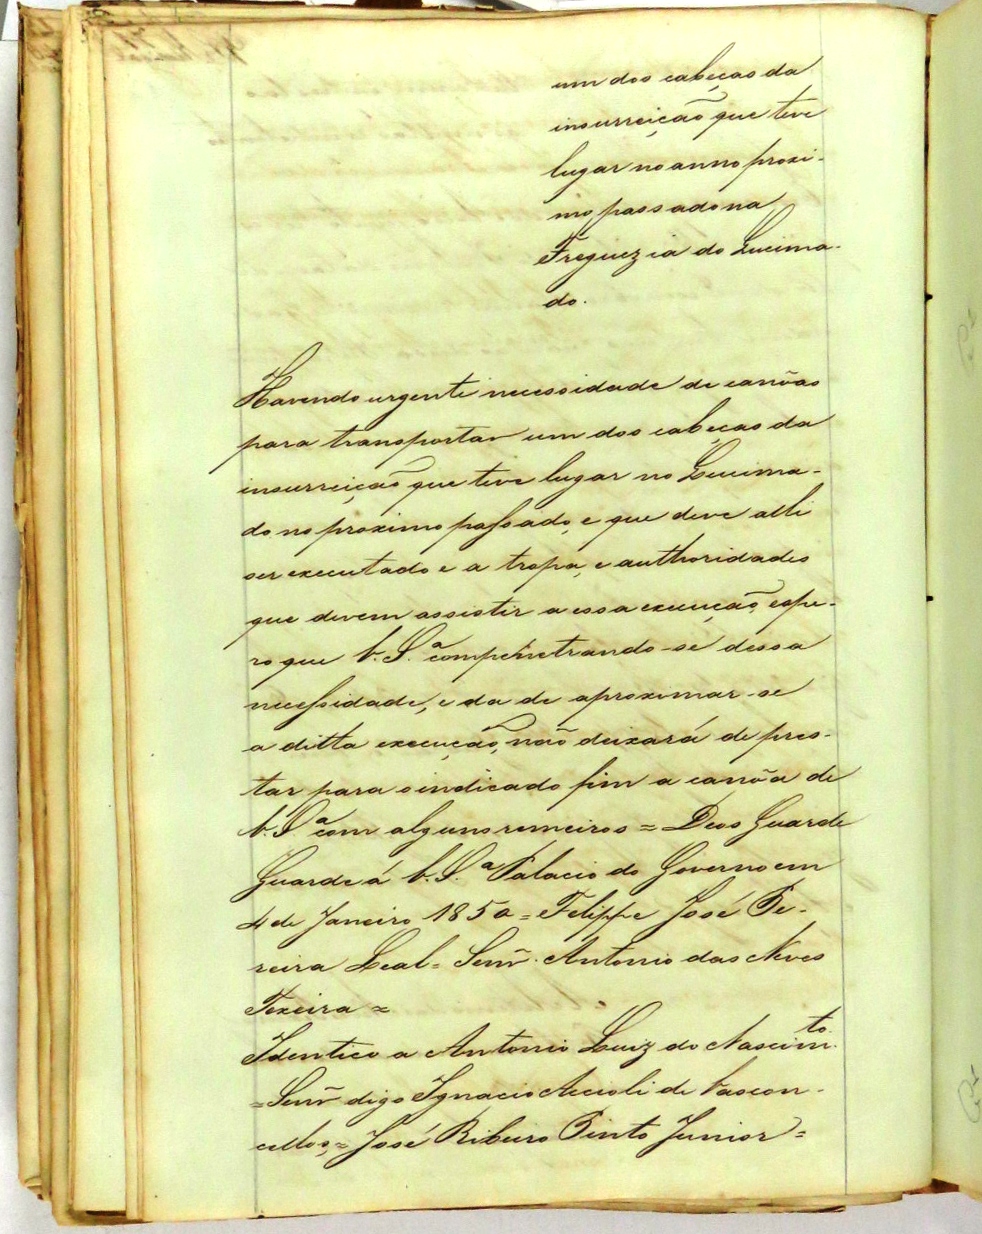 um dos cabeças da
insurreição que teve
lugar no anno proxi-
mo passado na
Freguezia do Queima-
do.
Havendo urgente necessidade de canôas
para transportar um dos cabeças da
insurreição que teve lugar no Queima-
do no proximo passado, e que deve alli
ser executado e a tropa, e authoridades
que devem assistir a essa execução, espe-
ro que V. S.ª compenetrando-se dessa
necessidade, e da de aproximar-se
a ditta execução, não deixará de pres-
tar para o indicado fim a canôa de
V. S.ª com alguns remeiros = Deos Guarde
Guarde á V. S.ª Palacio do Governo em
4 de Janeiro 1850 = Felippe José Pe-
reira Leal = Senr. Antonio das Neves
Texeira =
Identico a Antonio Luiz do Nascim.to
= Senr digo Ignacio Accioli de Vascon-
cellos, = José Ribeiro Pinto Junior =